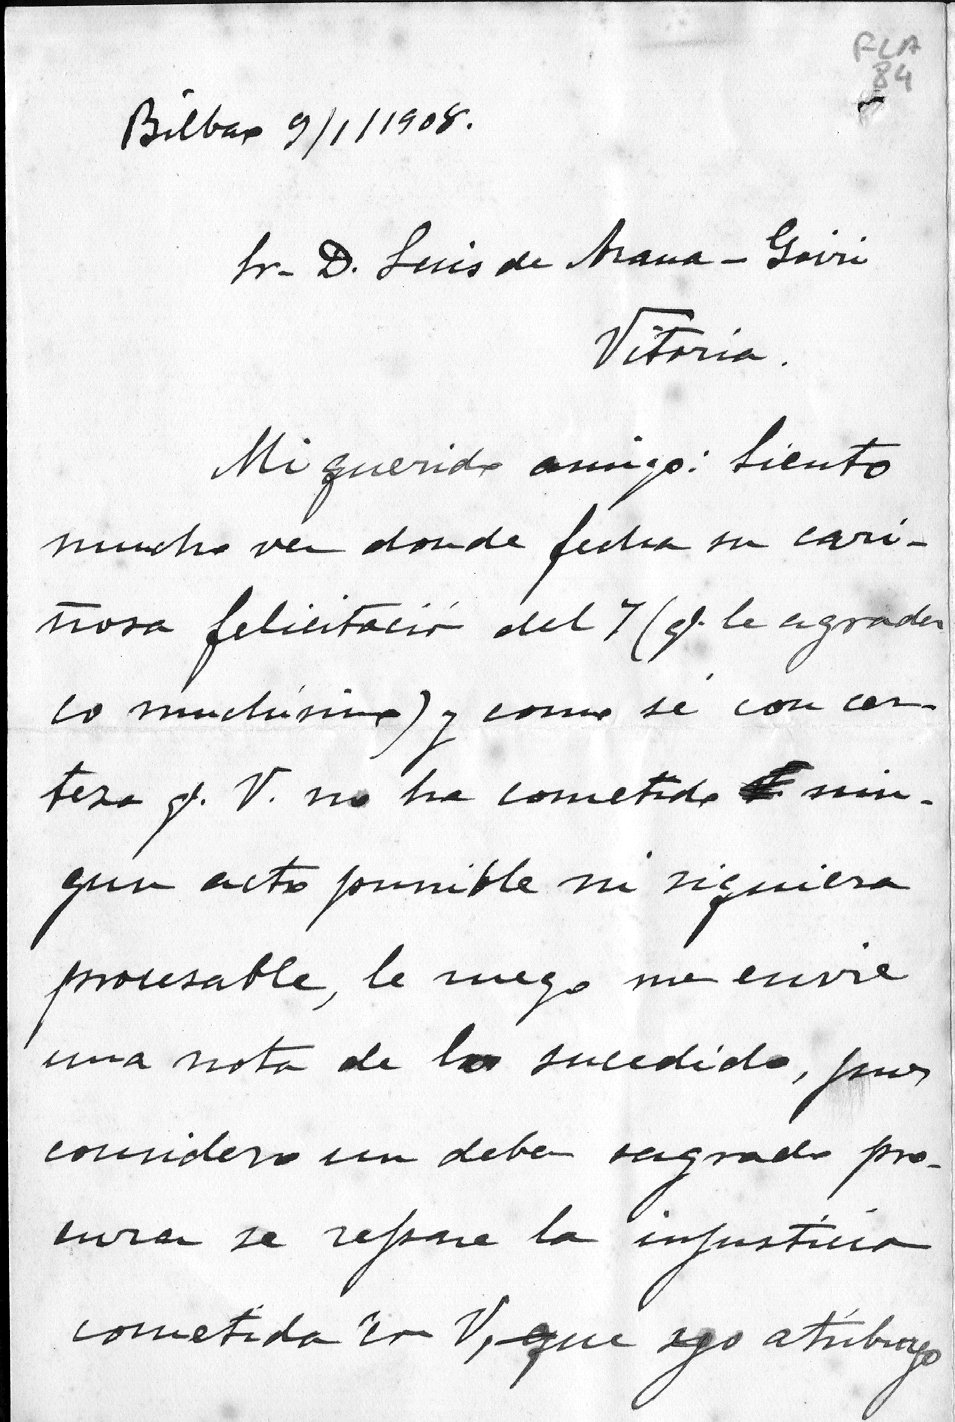 FLA
84
Bilbao 9/1/1908.
Sr. D. Luis de Arana-Goiri
Vitoria.
Mi querido amigo: Siento
mucho ver donde fecha su cari-
ñosa felicitació del 7 (q. le agradez
co muchísimo) y como sé con cer-
teza q. V. no ha cometido nin-
gun acto punible ni siquiera
procesable, le ruego me envie
una nota de lo sucedido, pues
considero un deber sagrado pro-
curar se repare la injusticia
cometida con V, que yo atribuyo